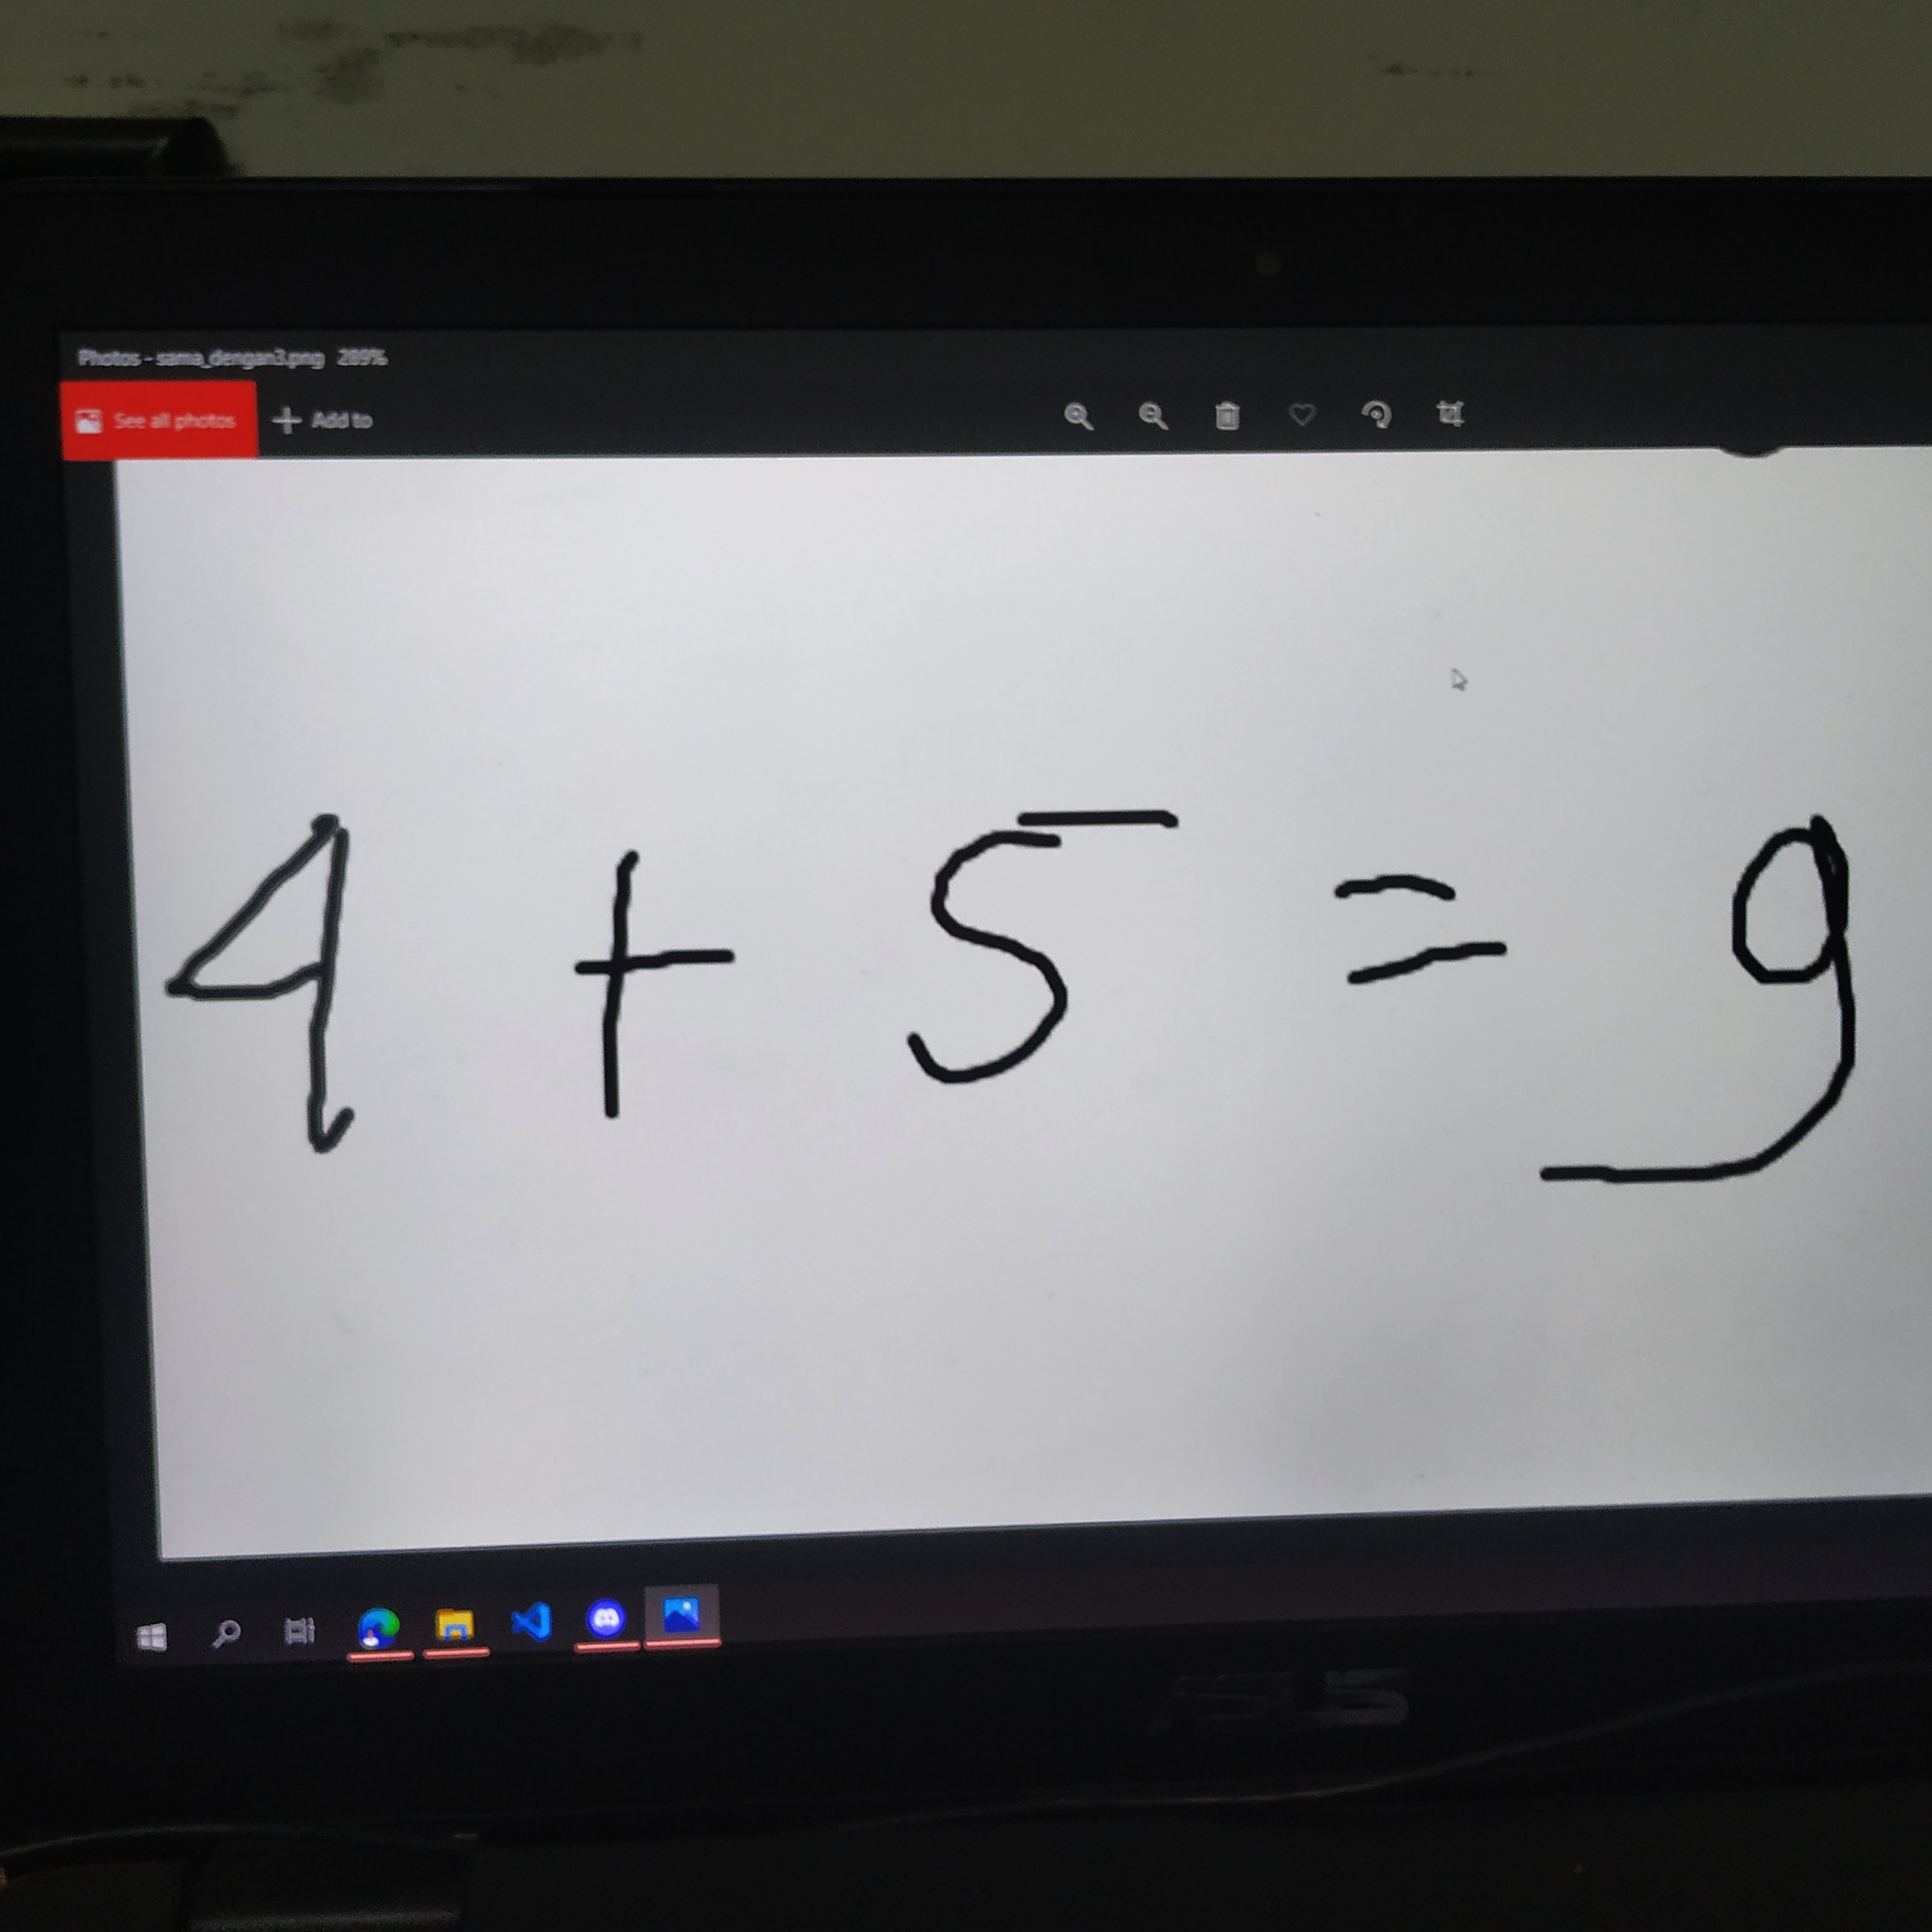 Photos - sama_dengan3.png 289%
See all photos
Add to
4 + 5 = 9
ASUS